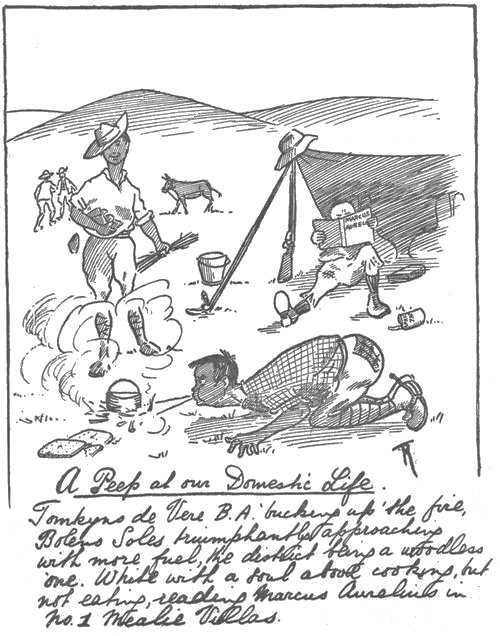 MARCUS
AUREL
A Peep at our Domestic Life.
Tomkyns de Vere B.A. 'bucking up' the fire,
Bolens Soles triumphantly approaching
with more fuel, the district being a woodless
one. White with a soul above cooking, but
not eating, reading Marcus Aurelius in
No. 1 Mealie Villas.